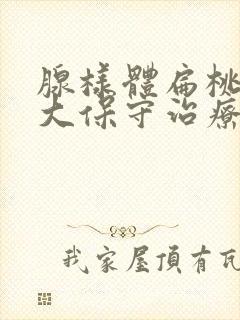 腺樣體扁桃
大保守治療
我家屋頂有瓦